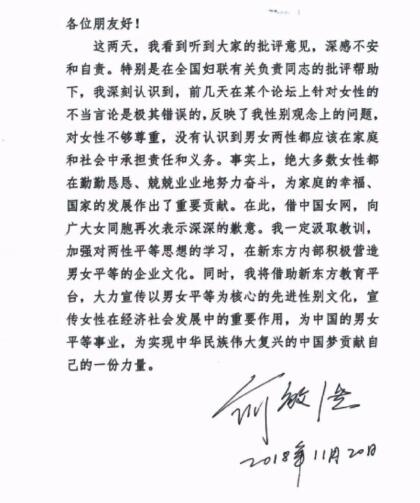 各位朋友好！
这两天，我看到听到大家的批评意见，深感不安
和自责。特别是在全国妇联有关负责同志的批评帮助
下，我深刻认识到，前几天在某个论坛上针对女性的
不当言论是极其错误的，反映了我性别观念上的问题，
对女性不够尊重，没有认识到男女两性都应该在家庭
和社会中承担责任和义务。事实上，绝大多数女性都
在勤勤恳恳、兢兢业业地努力奋斗，为家庭的幸福、
国家的发展作出了重要贡献。在此，借中国女网，向
广大女同胞再次表示深深的歉意。我一定汲取教训，
加强对两性平等思想的学习，在新东方内部积极营造
男女平等的企业文化。同时，我将借助新东方教育平
台，大力宣传以男女平等为核心的先进性别文化，宣
传女性在经济社会发展中的重要作用，为中国的男女
平等事业，为实现中华民族伟大复兴的中国梦贡献自
己的一份力量。
俞敏洪
2018年11月20日